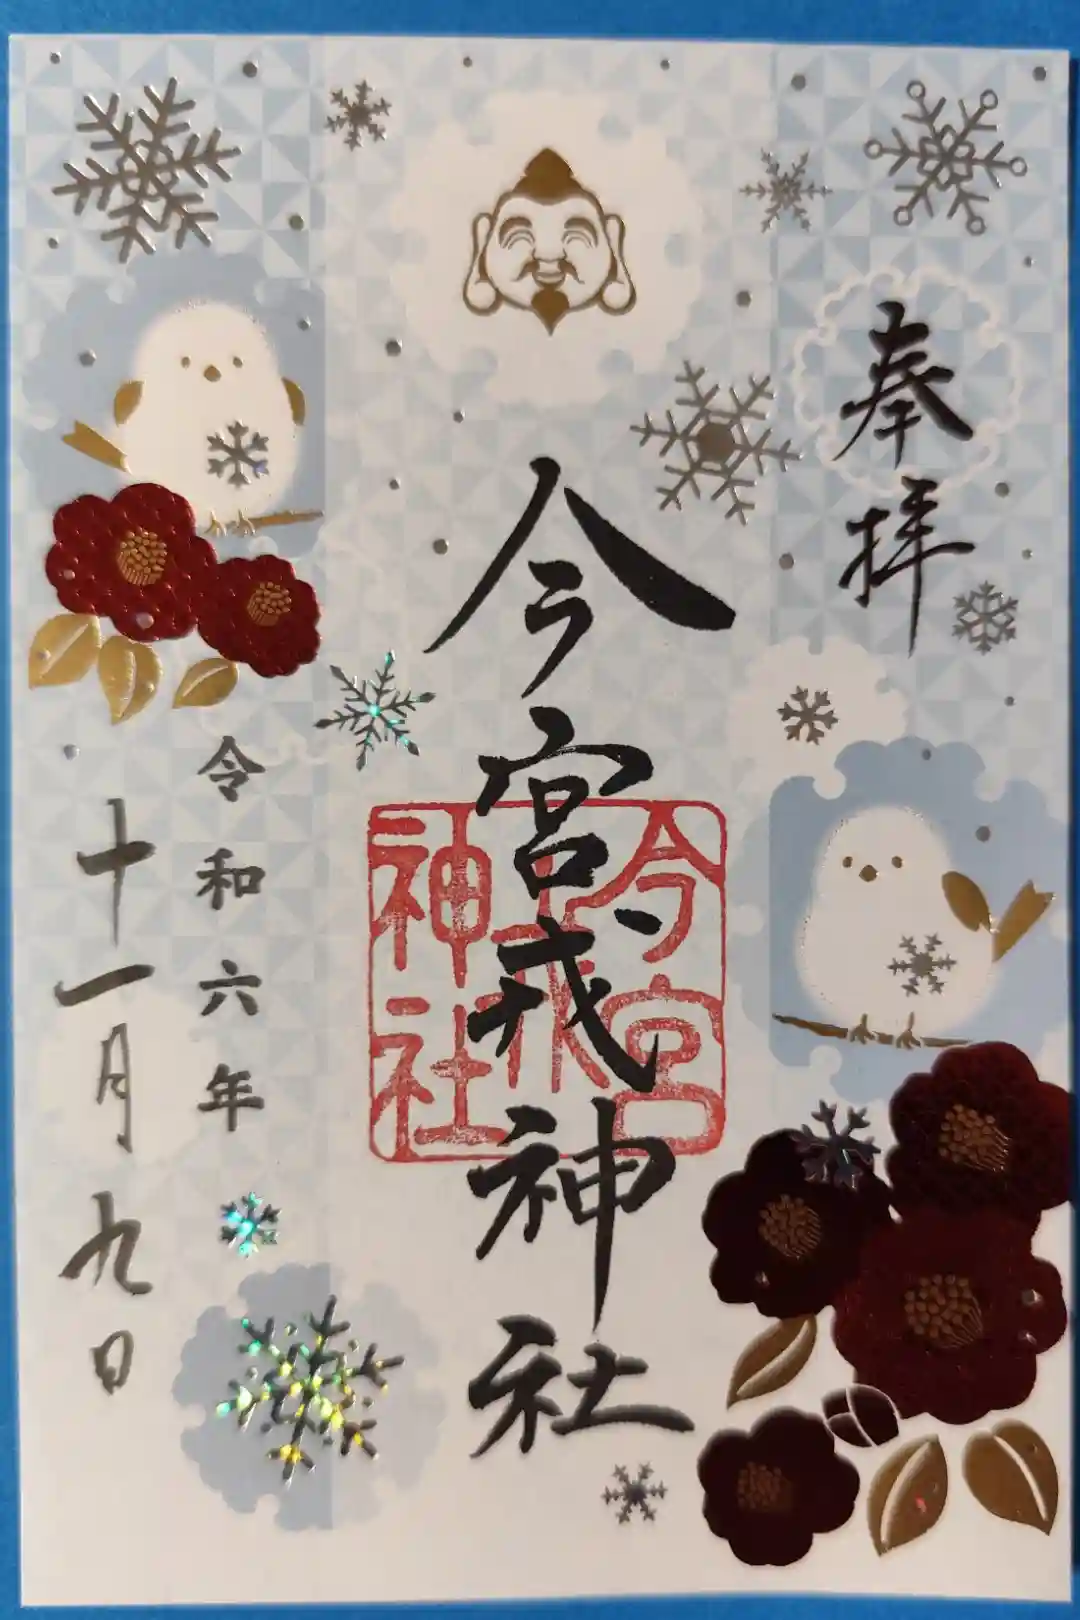 奉拝
今宮戎神社
今宮戎神社
令和六年
十一月九日